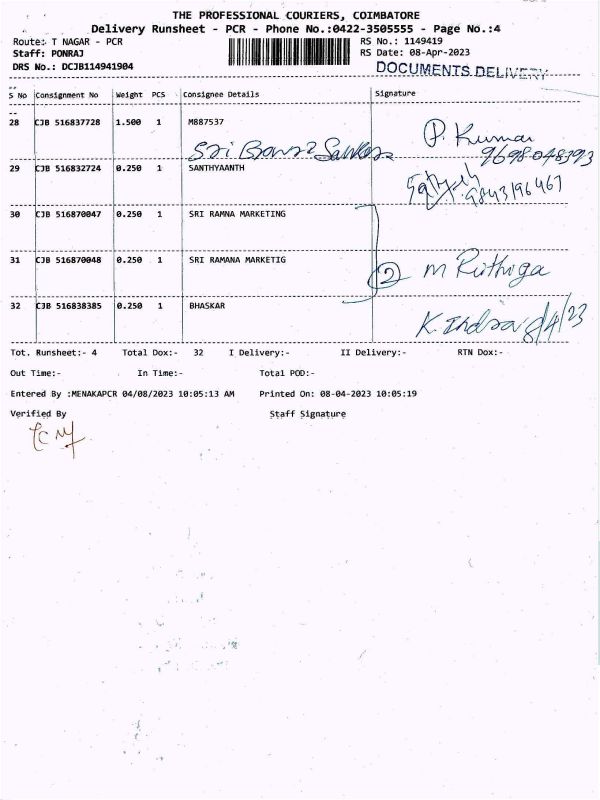 THE PROFESSIONAL COURIERS, COIMBATORE
Delivery Runsheet - PCR - Phone No.:0422-3505555 - Page No.:4
Route: T NAGAR - PCR
RS No.: 1149419
Staff: PONRAJ
RS Date: 08-Apr-2023
DRS No.: DCJB114941904
DOCUMENTS DELIVERY
S No Consignment No Weight PCS Consignee Details Signature
28 CJB 516837728 1.500 1 M887537
P. Kumar
9698048393
29 CJB 516832724 0.250 1 SANTHYAANTH
9843196467
30 CJB 516870047 0.250 1 SRI RAMNA MARKETING
31 CJB 516870048 0.250 1 SRI RAMANA MARKETIG
2 M Ruthiga
32 CJB 516838385 0.250 1 BHASKAR
K. Indra 8/4/23
Tot. Runsheet:- 4 Total Dox:- 32 I Delivery:- II Delivery:- RTN Dox:-
Out Time:- In Time:- Total POD:-
Entered By :MENAKAPCR 04/08/2023 10:05:13 AM Printed On: 08-04-2023 10:05:19
Verified By Staff Signature